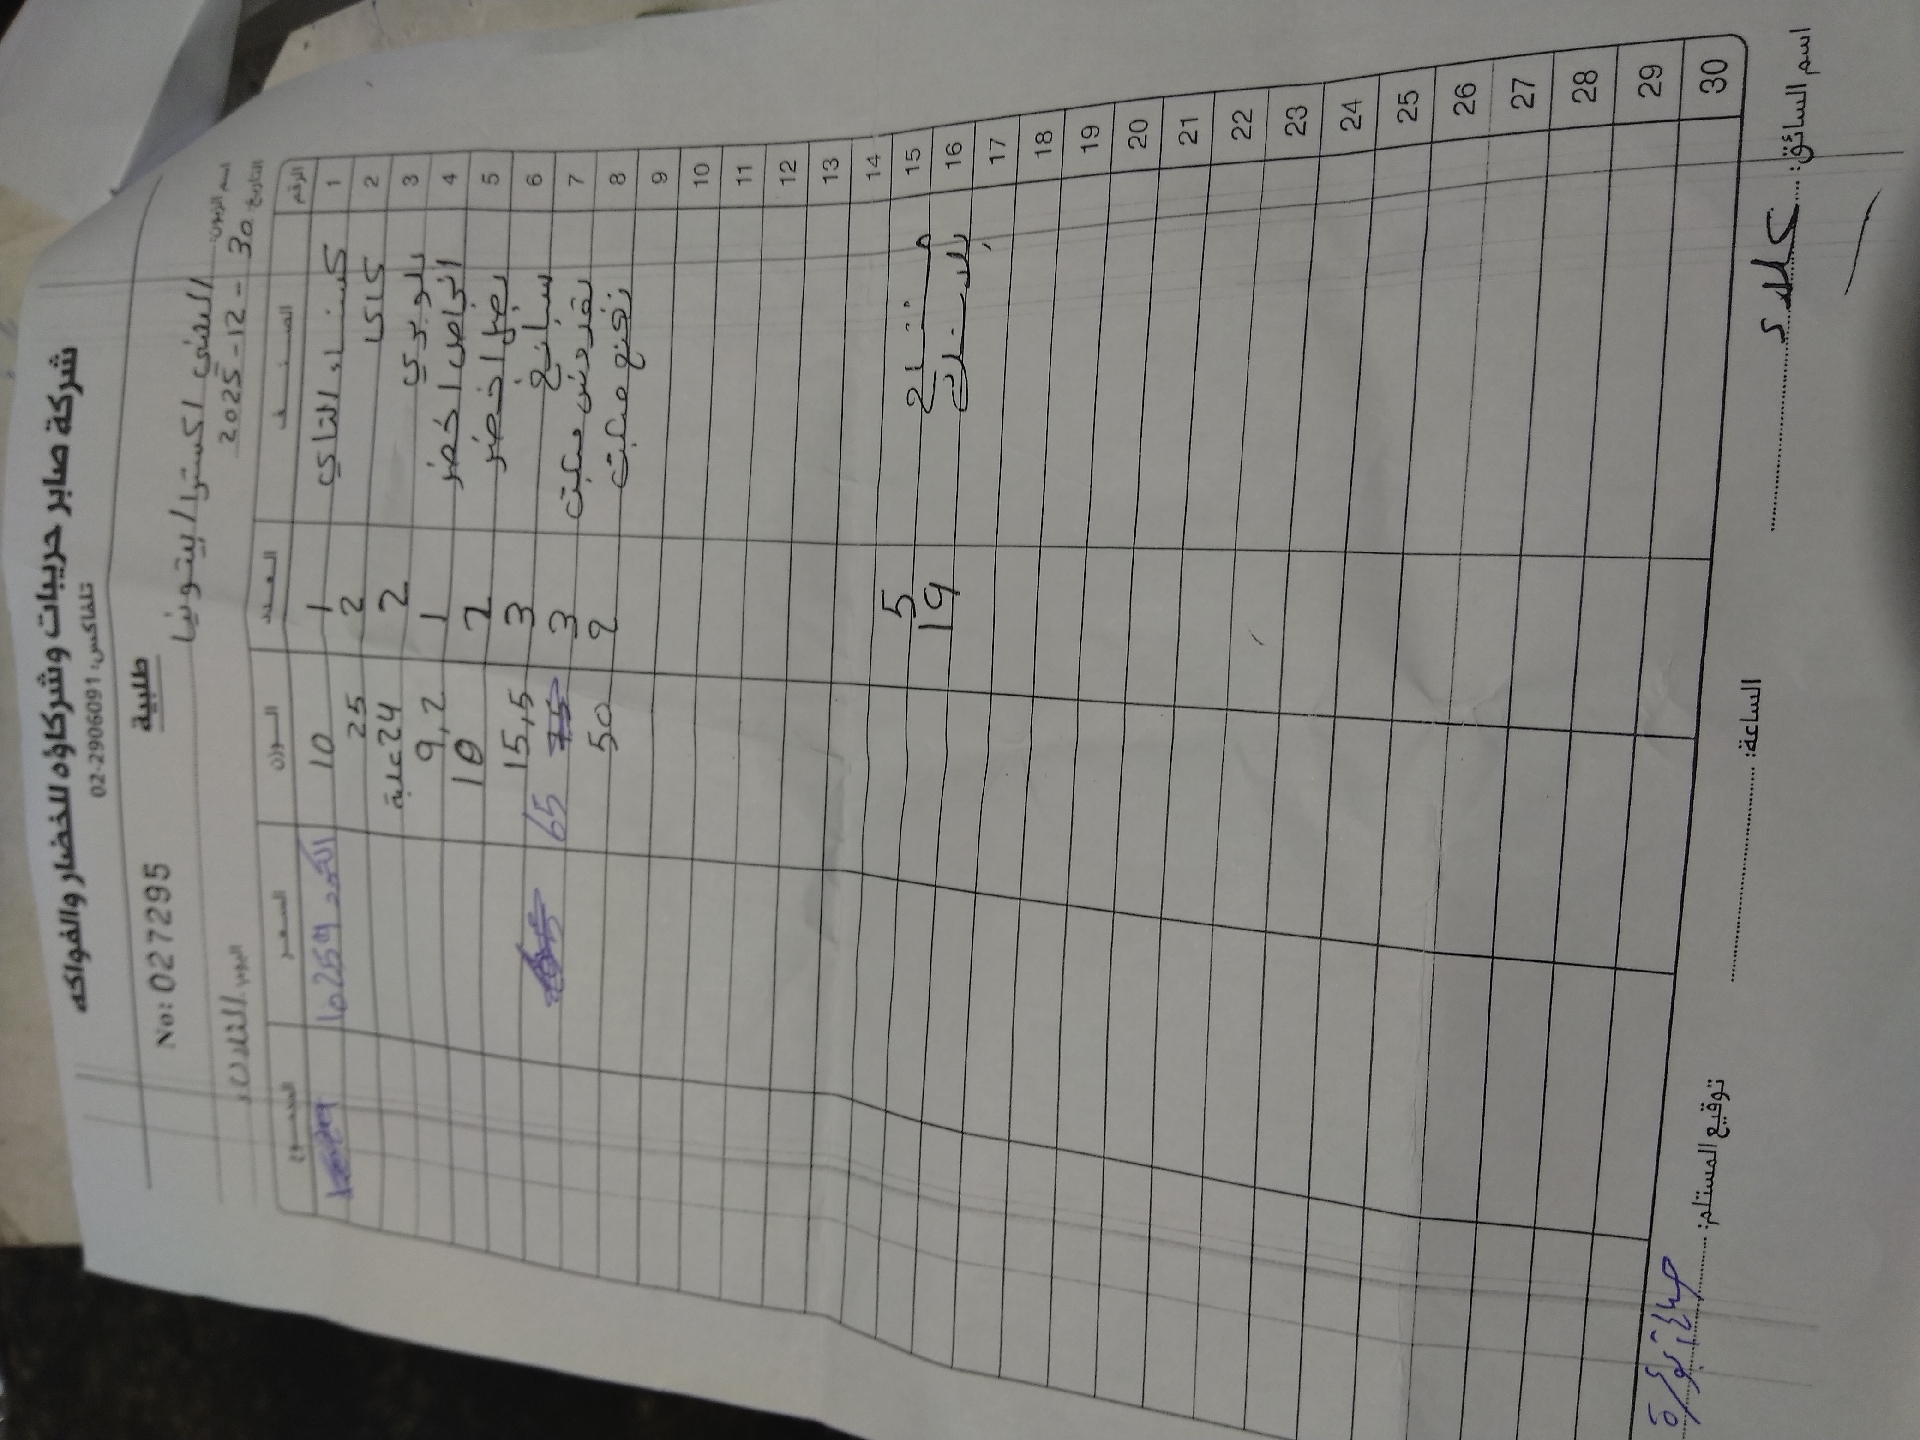 شركة صابر حريبات وشركاؤه للخضار والفواكه
تلفاكس: 02-2906091
طلبية
No: 027295
اسم الزبون: اكسترا / بيتونيا
التاريخ 30-12-2025
اليوم: الثلاثاء
الرقم الصنف العدد الوزن السعر المجموع
1 كستناء 1 10 10259
2 كاكا 2 25
3 بلو بري 2 24 علبة
4 اجاص اخضر 1 9,2
5 بصل اخضر 2 10
6 سبانخ 3 15,5
7 بقدونس سكبت 3 65
8 نعنع سكبت 2 50
9
10
11
12
13
14
15 5
16 بلاستيك 19
17
18
19
20
21
22
23
24
25
26
27
28
29
30
اسم السائق:
الساعة:
توقيع المستلم: